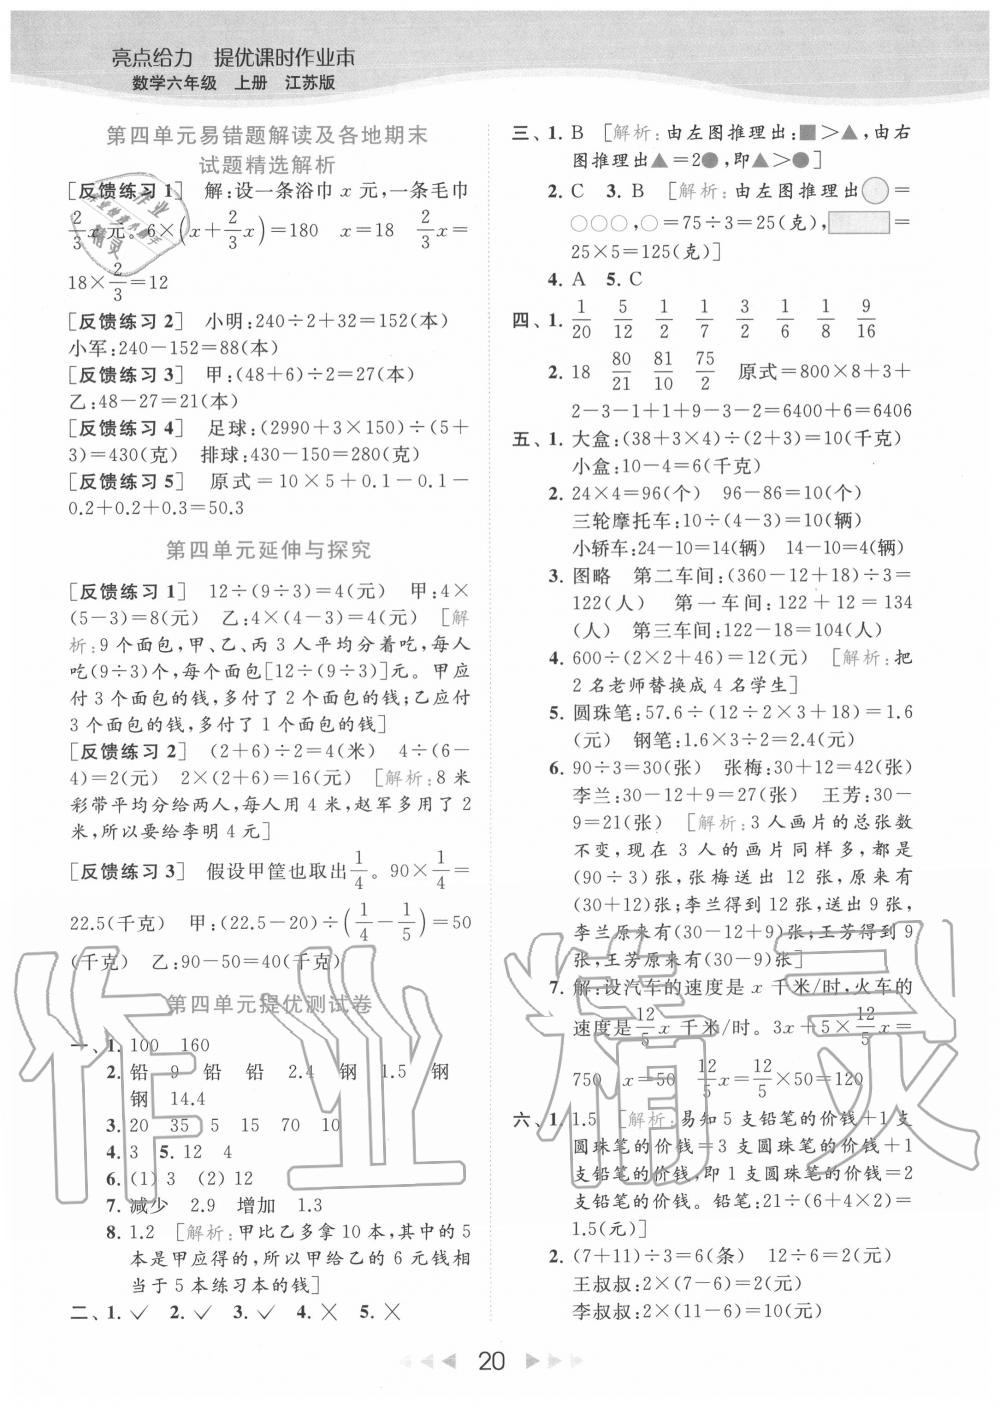 亮点给力 提优课时作业本
数学六年级 上册 江苏版
第四单元易错题解读及各地期末
试题精选解析
[反馈练习 1] 解:设一条浴巾 x 元,一条毛巾
2/3 x 元。6×(x+2/3 x)=180 x=18 2/3 x=
18×2/3=12
[反馈练习 2] 小明:240÷2+32=152(本)
小军:240-152=88(本)
[反馈练习 3] 甲:(48+6)÷2=27(本)
乙:48-27=21(本)
[反馈练习 4] 足球:(2990+3×150)÷(5+
3)=430(克) 排球:430-150=280(克)
[反馈练习 5] 原式=10×5+0.1-0.1-
0.2+0.2+0.3=50.3
第四单元延伸与探究
[反馈练习 1] 12÷(9÷3)=4(元) 甲:4×
(5-3)=8(元) 乙:4×(4-3)=4(元) [解
析:9 个面包,甲、乙、丙 3 人平均分着吃,每人
吃(9÷3)个,每个面包[12÷(9÷3)]元。甲应
付 3 个面包的钱,多付了 2 个面包的钱;乙应付
3 个面包的钱,多付了 1 个面包的钱]
[反馈练习 2] (2+6)÷2=4(米) 4÷(6-
4)=2(元) 2×(2+6)=16(元) [解析:8 米
彩带平均分给两人,每人用 4 米,赵军多用了 2
米,所以要给李明 4 元]
[反馈练习 3] 假设甲筐也取出1/4。90×1/4=
22.5(千克) 甲:(22.5-20)÷(1/4-1/5)=50
(千克) 乙:90-50=40(千克)
第四单元提优测试卷
一、1. 100 160
2. 铅 9 铅 铅 2.4 钢 1.5 钢
钢 14.4
3. 20 35 5 15 70 10
4. 3 5. 12 4
6. (1) 3 (2) 12
7. 减少 2.9 增加 1.3
8. 1.2 [解析:甲比乙多拿 10 本,其中的 5
本是甲应得的,所以甲给乙的 6 元钱相
当于 5 本练习本的钱]
二、1. ✓ 2. ✓ 3. ✓ 4. ✕ 5. ✕
三、1. B [解析:由左图推理出:■>▲,由右
图推理出▲=2●,即▲>●]
2. C 3. B [解析:由左图推理出○=
○○○,○=75÷3=25(克),▭=
25×5=125(克)]
4. A 5. C
四、1. 1/20 5/12 1/2 1/7 3/2 1/6 1/8 9/16
2. 18 80/21 81/10 75/2 原式=800×8+3+
2-3-1+1+9-3-2=6400+6=6406
五、1. 大盒:(38+3×4)÷(2+3)=10(千克)
小盒:10-4=6(千克)
2. 24×4=96(个) 96-86=10(个)
三轮摩托车:10÷(4-3)=10(辆)
小轿车:24-10=14(辆) 14-10=4(辆)
3. 图略 第二车间:(360-12+18)÷3=
122(人) 第一车间:122+12=134
(人) 第三车间:122-18=104(人)
4. 600÷(2×2+46)=12(元) [解析:把
2 名老师替换成 4 名学生]
5. 圆珠笔:57.6÷(12÷2×3+18)=1.6
(元) 钢笔:1.6×3÷2=2.4(元)
6. 90÷3=30(张) 张梅:30+12=42(张)
李兰:30-12+9=27(张) 王芳:30-
9=21(张) [解析:3 人画片的总张数
不变,现在 3 人的画片同样多,都是
(90÷3)张,张梅送出 12 张,原来有
(30+12)张;李兰得到 12 张,送出 9 张,
李兰原来有(30-12+9)张;王芳得到 9
张,王芳原来有(30-9)张]
7. 解:设汽车的速度是 x 千米/时,火车的
速度是12/5 x 千米/时。3x+5×12/5 x=
750 x=50 12/5 x=12/5×50=120
六、1. 1.5 [解析:易知 5 支铅笔的价钱+1 支
圆珠笔的价钱=3 支圆珠笔的价钱+1
支铅笔的价钱,即 1 支圆珠笔的价钱=2
支铅笔的价钱。铅笔:21÷(6+4×2)=
1.5(元)]
2. (7+11)÷3=6(条) 12÷6=2(元)
王叔叔:2×(7-6)=2(元)
李叔叔:2×(11-6)=10(元)
作业精灵
20